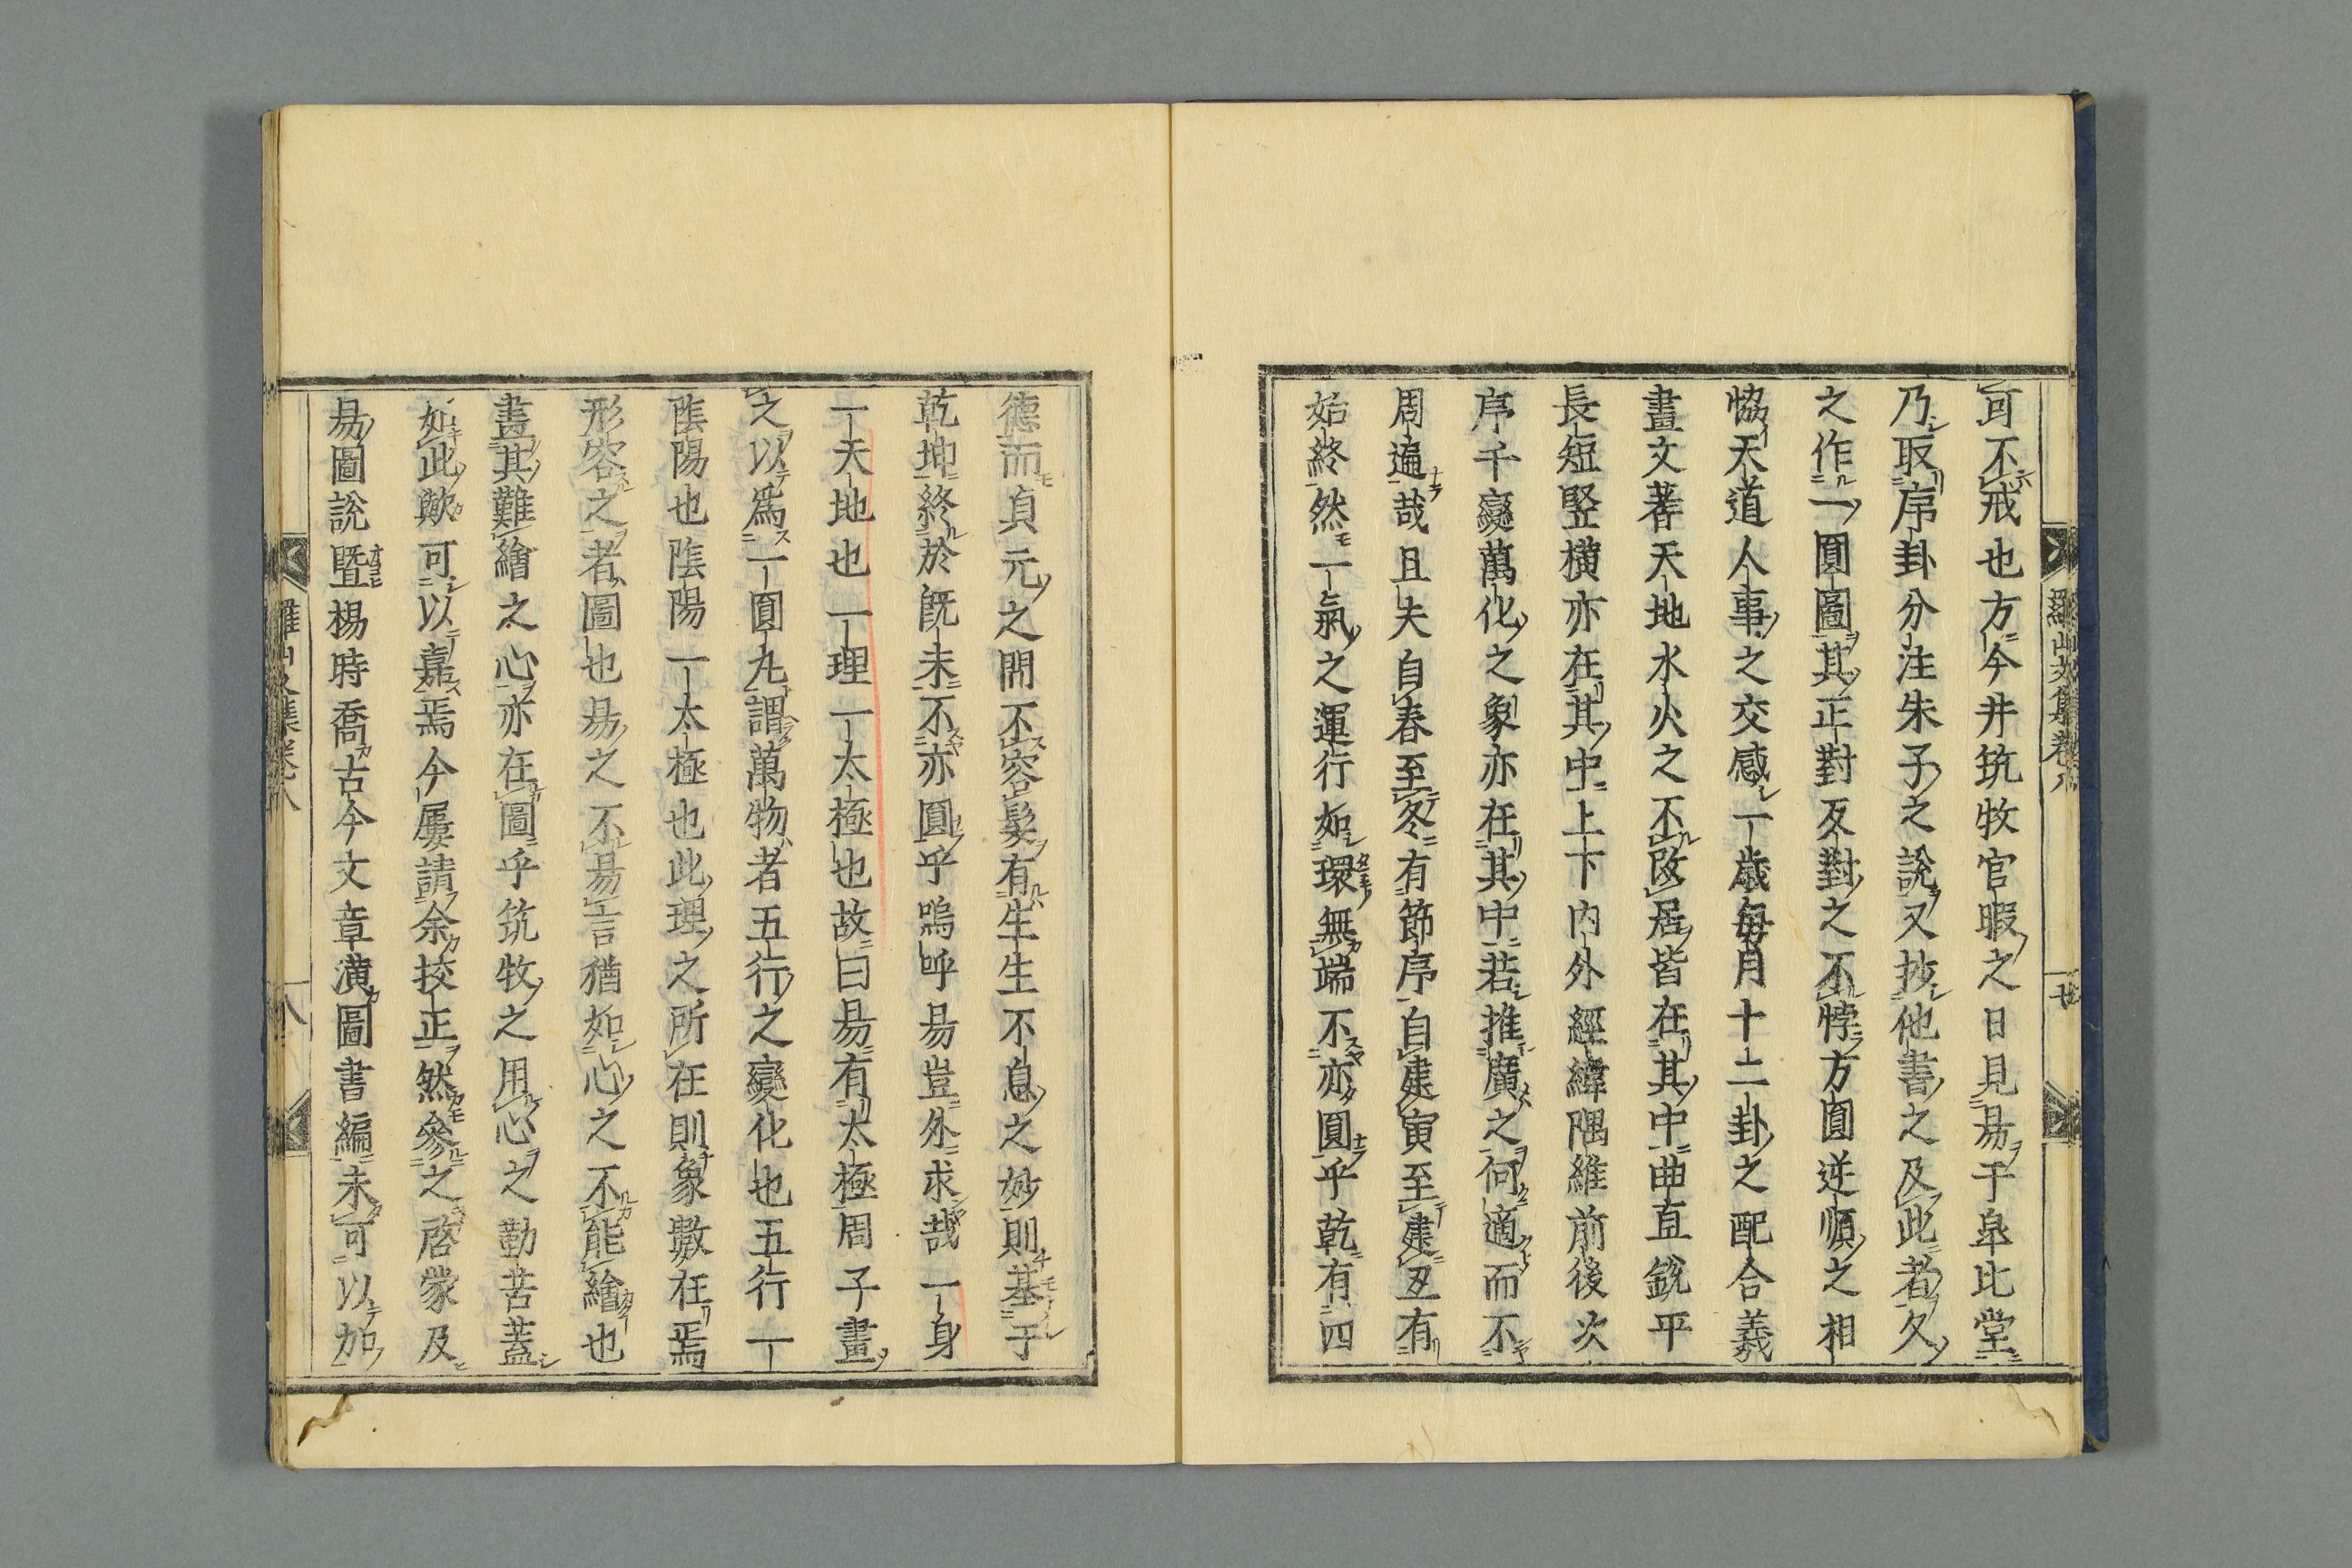 可不戒也方今井筑牧官暇之日見易于皐比堂
乃取序卦分注朱子之說又抄他書之及此者久
之作一圓圖其正對反對之不悖方圓逆順之相
恊天道人事之交感一歲每月十二卦之配合義
畫文著天地水火之不改居皆在其中曲直銳平
長短竪橫亦在其中上下內外經緯隅維前後次
序千變萬化之象亦在其中若推廣之何適而不
周遍哉且夫自春至冬有節序自建寅至建丑有
始終然一氣之運行如環無端不亦圓乎乾有四
德而貞元之間不容髮有生生不息之妙則基于
乾坤終於旣未不亦圓乎嗚呼易豈外求哉一身
一天地也一理一太極也故曰易有太極周子畫
之以爲一圓九謂萬物者五行之變化也五行一
陰陽也陰陽一太極也此理之所在則象數在焉
形容之者圖也易之不易言猶如心之不能繪也
畫其難繪之心亦在圖乎筑牧之用心之勤苦蓋
如此歟可以嘉焉今屢請余挍正然參之啓蒙及
易圖說曁楊時喬古今文章潢圖書編未可以加
羅山文集卷八
八